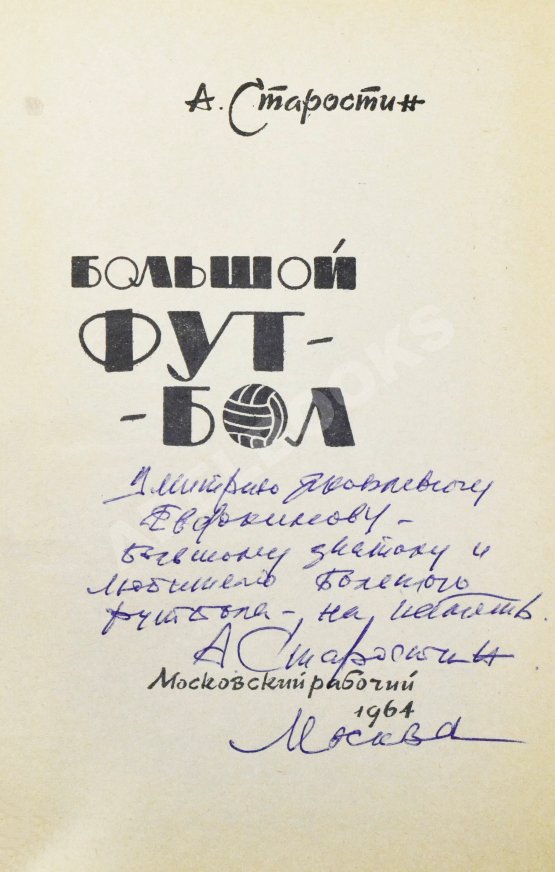 А. Старостин
БОЛЬШОЙ
ФУТ-
-БОЛ
Дмитрию Яковлевичу
Евдокимову –
большому знатоку и
любителю Большого
футбола – на память.
А Старостин
Московский рабочий
1964
Москва